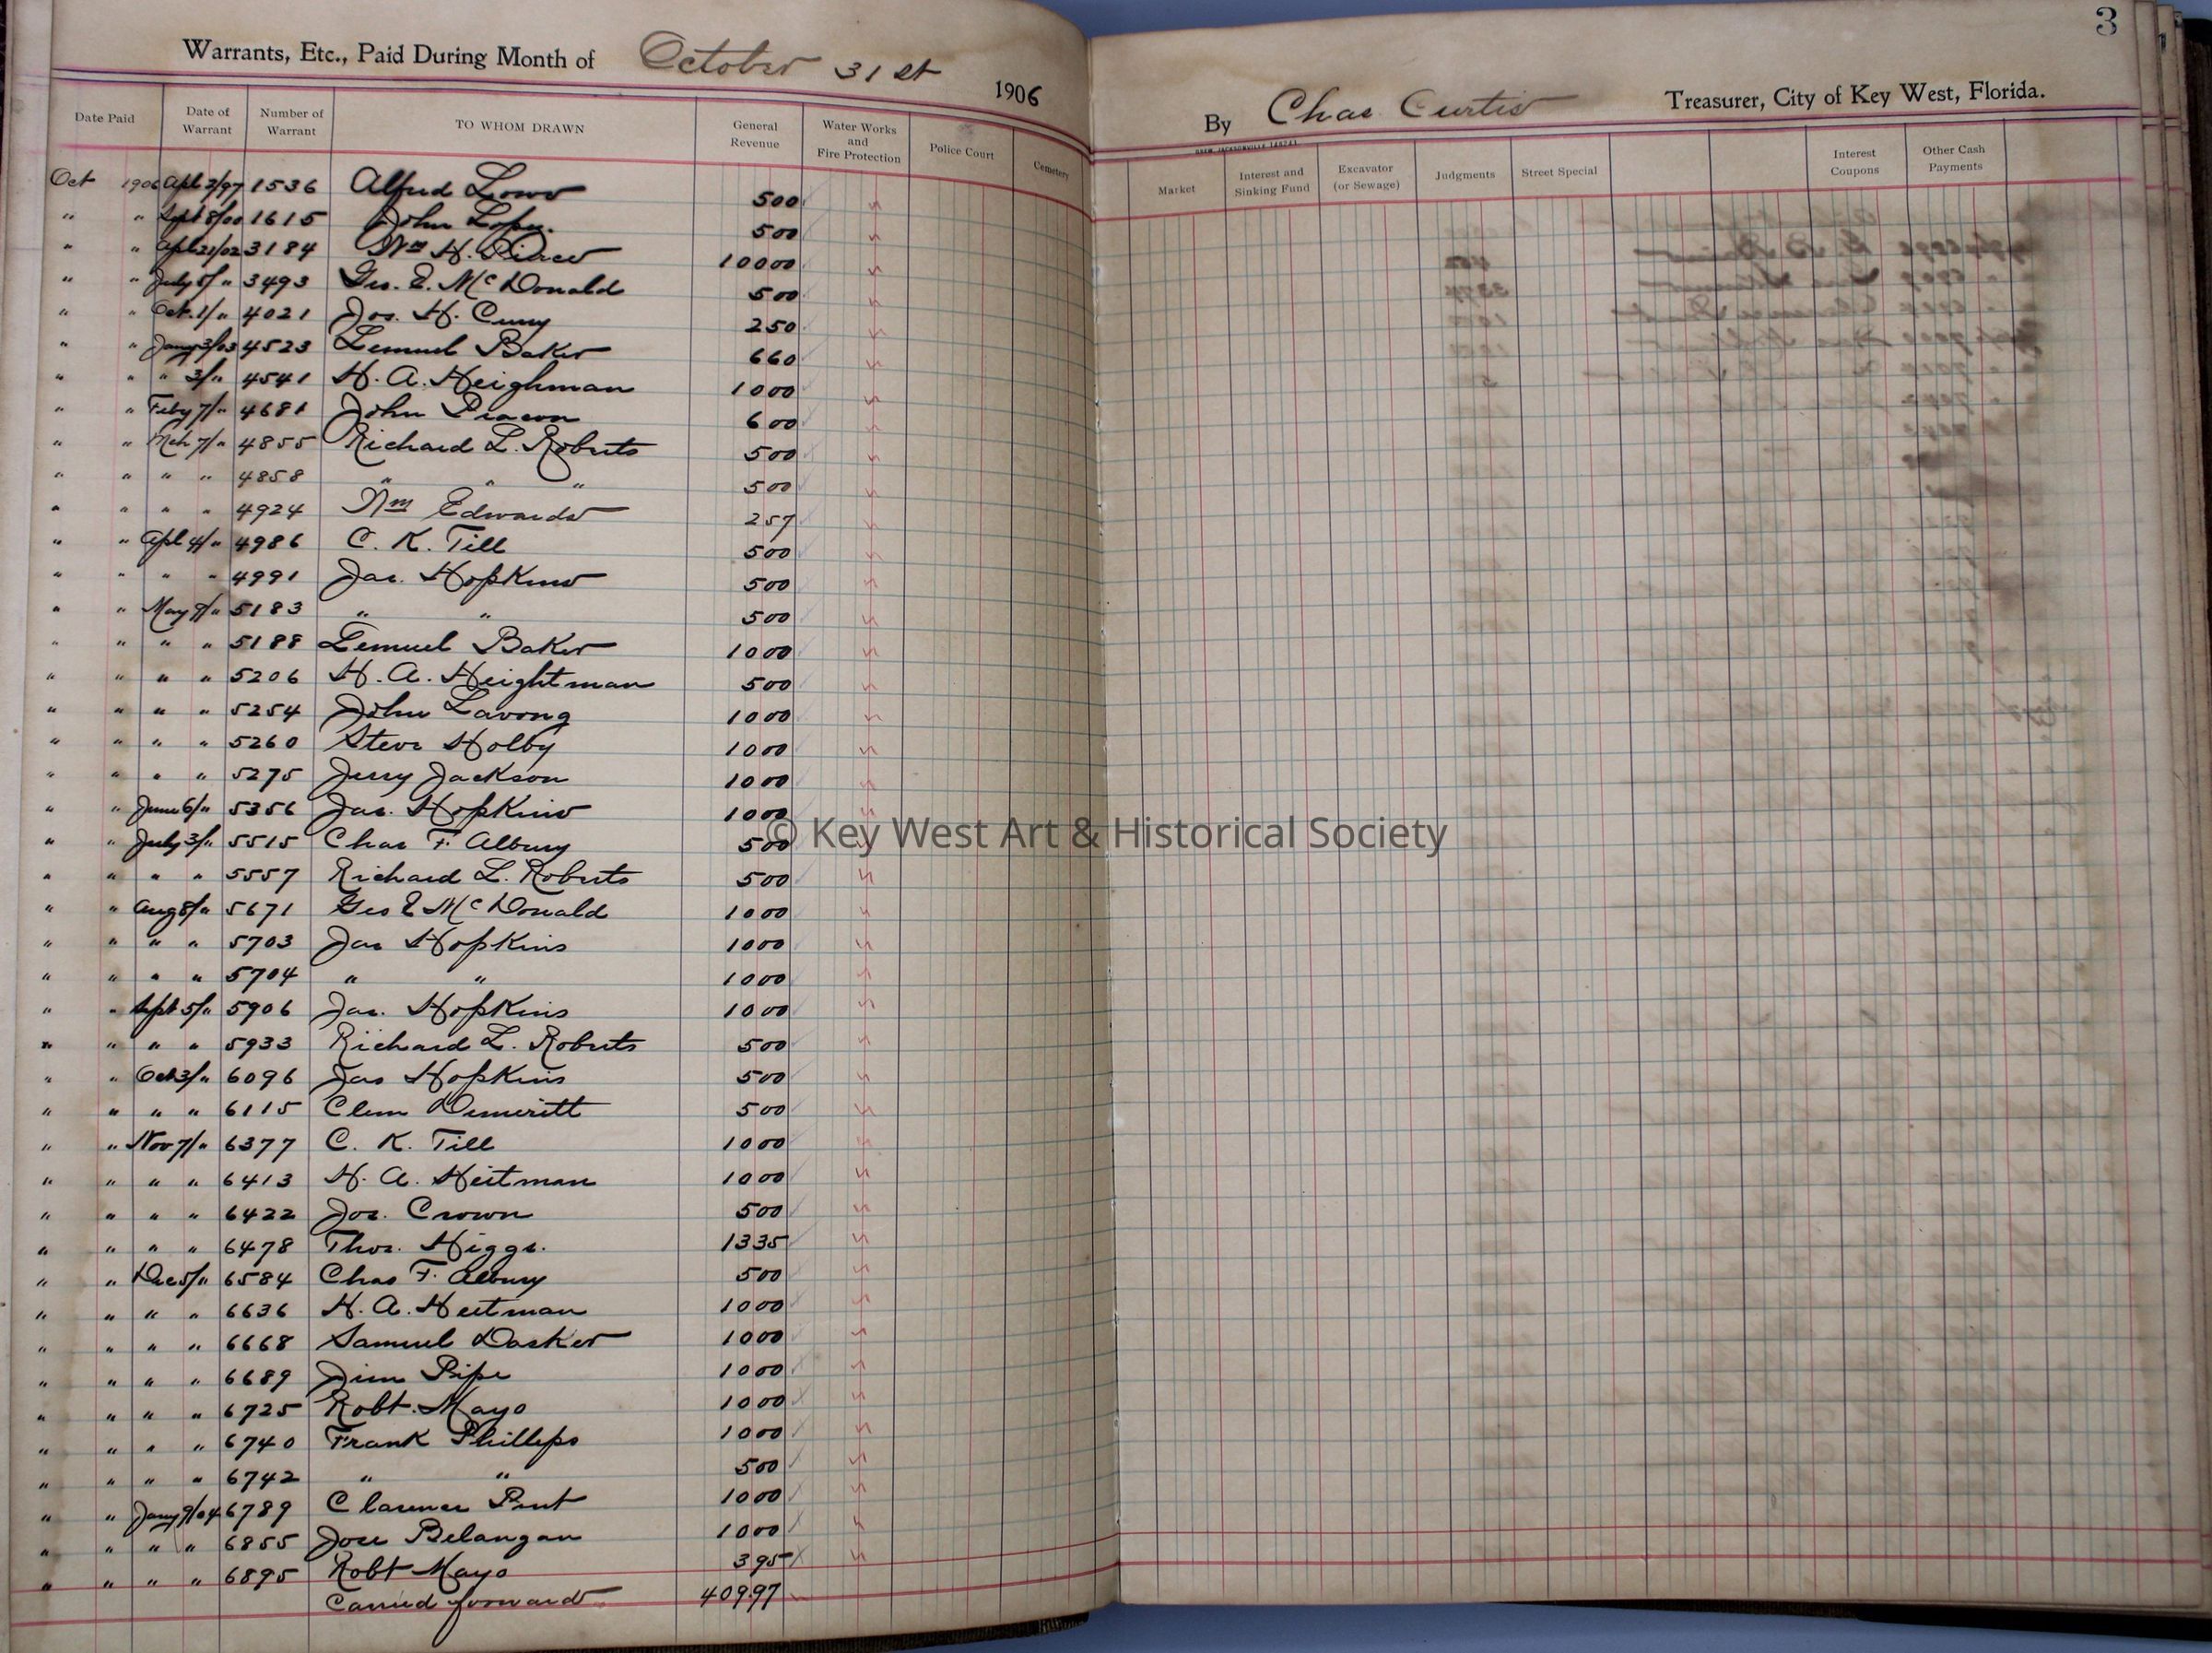 Warrants, Etc., Paid During Month of October 31st 1906
By Chas Curtis Treasurer, City of Key West, Florida.
3
Date Paid Date of Warrant Number of Warrant TO WHOM DRAWN General Revenue Water Works and Fire Protection Police Court Cemetery Market Interest and Sinking Fund Excavator (or Sewage) Judgments Street Special Interest Coupons Other Cash Payments
Oct 1906 Apl 2/97 1536 Alfred Lowe 500
" " Sept 8/00 1615 John Lopez. 500
" " Apl 21/02 3184 Wm H. 10000
" " July 8/ " 3493 Geo. E. McDonald 500
" " Oct. 1/ " 4021 Jos. H. Curry 250
" " Jany 3/03 4523 Lemuel Baker 660
" " " 3/ " 4541 H. A. Heighman 1000
" " Feby 7/ " 4681 John Deacon 600
" " Mch 7/ " 4855 Richard L. Roberts 500
" " " " 4858 " " " 500
" " " " 4924 Wm Edwards 257
" " Apl 4/ " 4986 C. K. Till 500
" " " " 4991 Jas. Hopkins 500
" " May 9/ " 5183 " " 500
" " " " 5188 Lemuel Baker 1000
" " " " 5206 H. A. Heightman 500
" " " " 5254 John Lavong 1000
" " " " 5260 Steve Holby 1000
" " " " 5275 Jerry Jackson 1000
" " June 6/ " 5356 Jas. Hopkins 1000
" " July 3/ " 5515 Chas F. Albury 500
" " " " 5557 Richard L. Roberts 500
" " Aug 8/ " 5671 Geo E McDonald 1000
" " " " 5703 Jas Hopkins 1000
" " " " 5704 " " 1000
" " Sept 5/ " 5906 Jas. Hopkins 1000
" " " " 5933 Richard L. Roberts 500
" " Oct 3/ " 6096 Jas Hopkins 500
" " " " 6115 Clem Demeritt 500
" " Nov 7/ " 6377 C. K. Till 1000
" " " " 6413 H. A. Heitman 1000
" " " " 6422 Jos. Crown 500
" " " " 6478 Thos. Higgs. 1335
" " Dec 5/ " 6584 Chas F. Albury 500
" " " " 6636 H. A. Heitman 1000
" " " " 6668 Samuel Dasker 1000
" " " " 6689 Jim Pipe 1000
" " " " 6725 Robt. Mayo 1000
" " " " 6740 Frank Phillips 1000
" " " " 6742 " " 500
" " Jany 9/04 6789 Clarence Pent 1000
" " " " 6855 Jose Belangan 1000
" " " " 6895 Robt Mayo 395
Carried forward 40997
© Key West Art & Historical Society